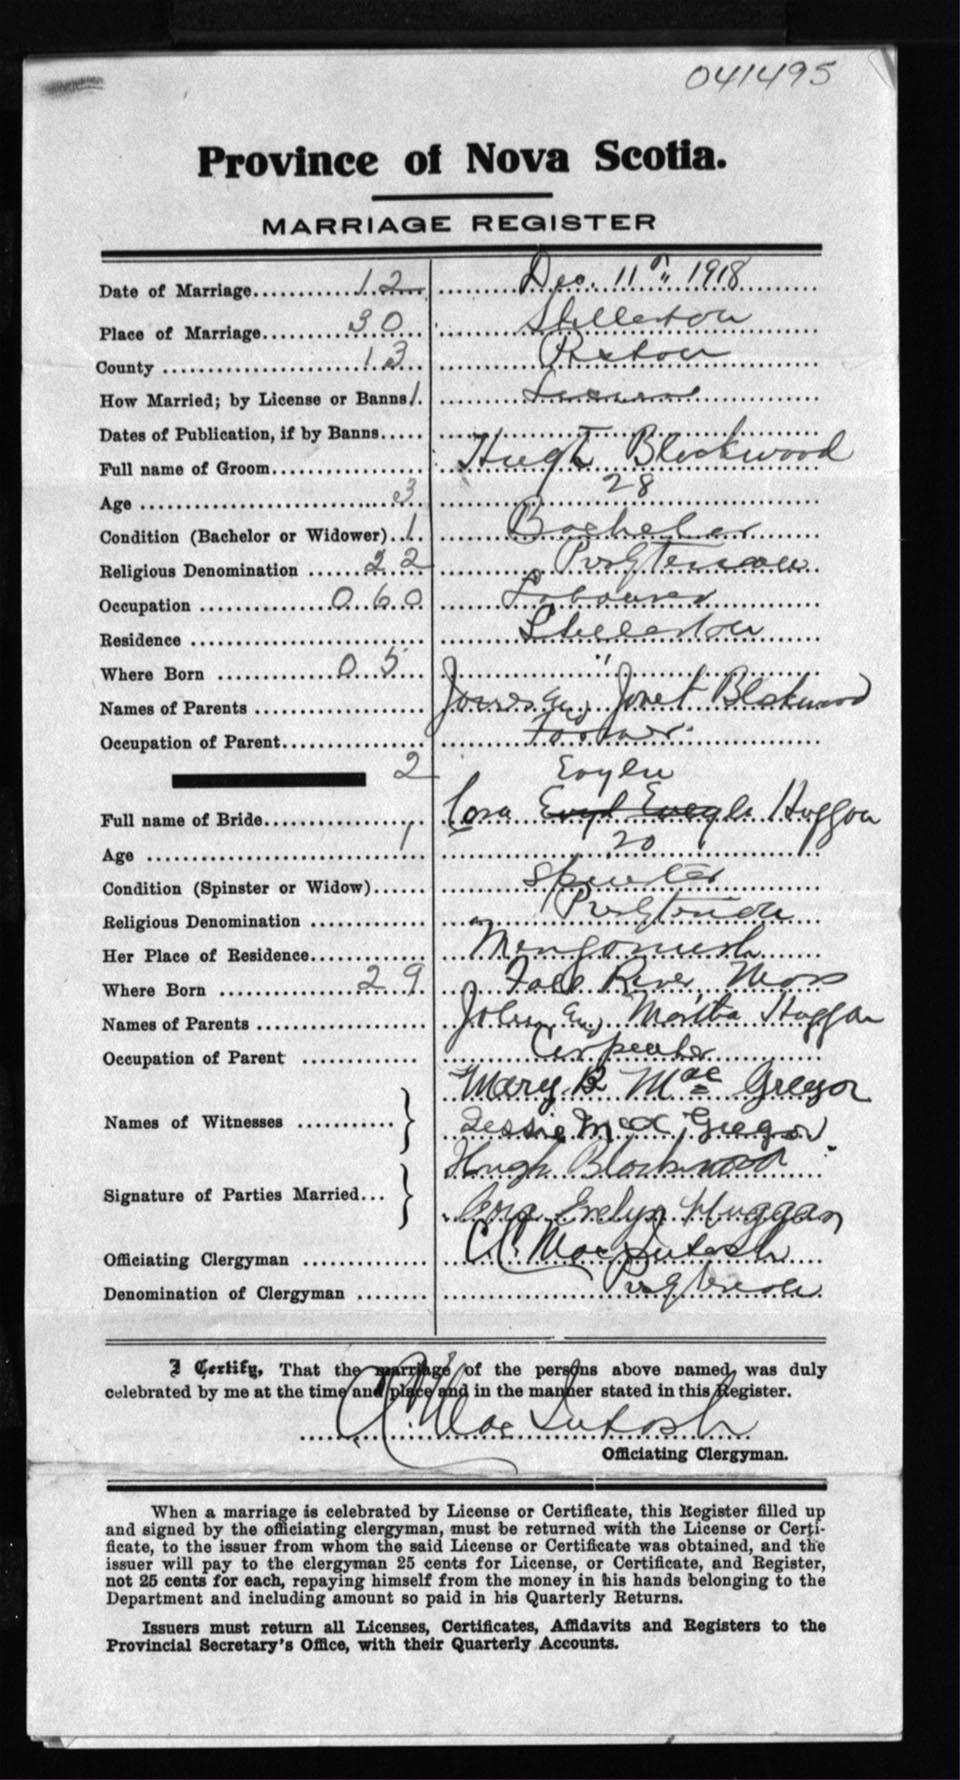 041495
Province of Nova Scotia.
MARRIAGE REGISTER
Date of Marriage............12 Dec. 11th 1918
Place of Marriage............30 Stellarton
County ............13 Pictou
How Married; by License or Banns 1. License
Dates of Publication, if by Banns.....
Full name of Groom................ Hugh Blackwood
Age ............3 28
Condition (Bachelor or Widower)..1. Bachelor
Religious Denomination ......22 Presbyterian
Occupation ............060 Labourer
Residence ............ Stellarton
Where Born ............05 "
Names of Parents ............ James and Janet Blackwood
Occupation of Parent............
2 Evyln
Full name of Bride............ Cora Huggan
Age ............1 20
Condition (Spinster or Widow)...... Spinster
Religious Denomination ............ " Presbyterian
Her Place of Residence............ Merigomish
Where Born ............29 Fall River Mass
Names of Parents ............ John and Martha Huggan
Occupation of Parent ............ Carpenter
Mary B Mac Gregor
Names of Witnesses ...........
Jessie Mac Gregor
Hugh Blackwood
Signature of Parties Married...
Cora Evelyn Huggan
Officiating Clergyman ............ C. C. MacIntosh
Denomination of Clergyman ........ Presbyterian
I Certify, That the marriage of the persons above named, was duly
celebrated by me at the time and place and in the manner stated in this Register.
C. C. MacIntosh
Officiating Clergyman.
When a marriage is celebrated by License or Certificate, this Register filled up
and signed by the officiating clergyman, must be returned with the License or Certi-
ficate, to the issuer from whom the said License or Certificate was obtained, and the
issuer will pay to the clergyman 25 cents for License, or Certificate, and Register,
not 25 cents for each, repaying himself from the money in his hands belonging to the
Department and including amount so paid in his Quarterly Returns.
Issuers must return all Licenses, Certificates, Affidavits and Registers to the
Provincial Secretary's Office, with their Quarterly Accounts.